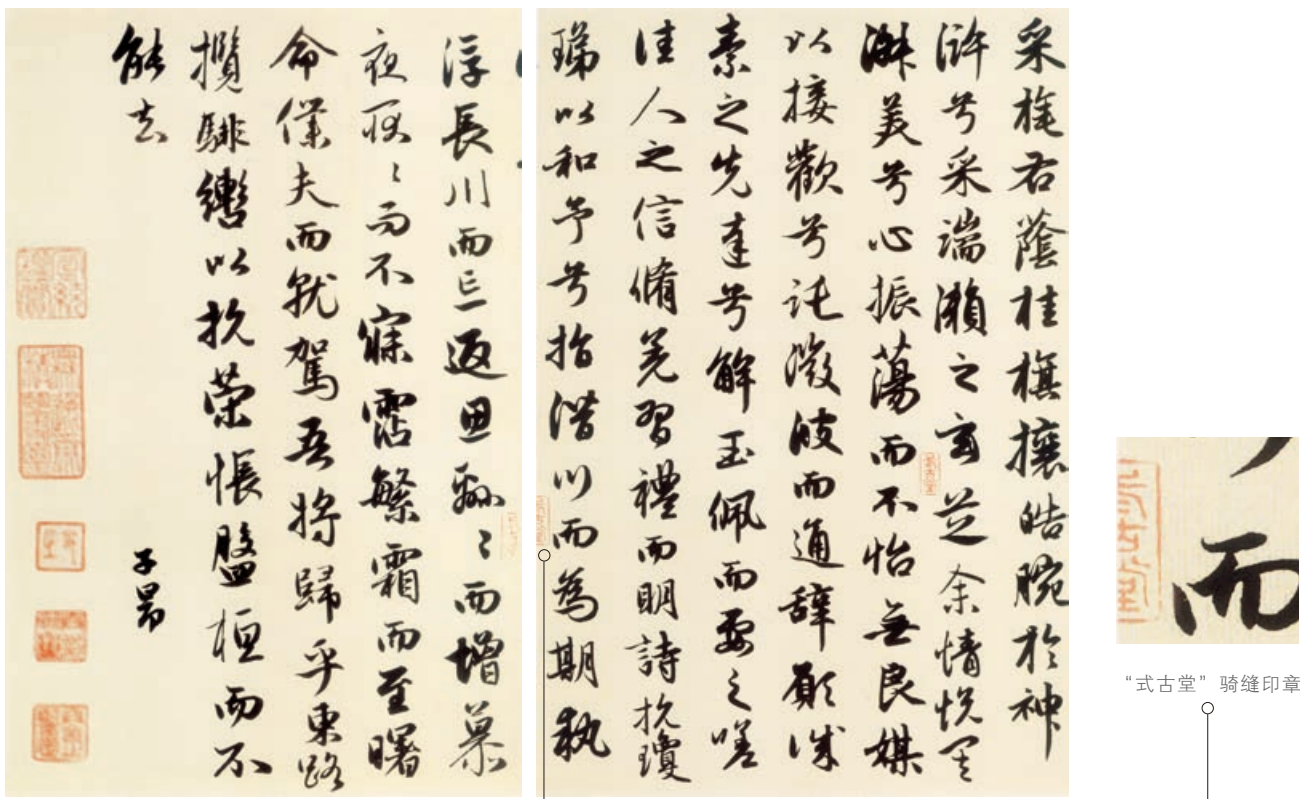 采旄右蔭桂旗攘皓腕於神
滸兮采湍瀨之玄芝余情悅其
淑美兮心振蕩而不怡無良媒
以接歡兮託微波而通辭願誠
素之先達兮解玉佩而要之嗟
佳人之信脩羌習禮而明詩抗瓊
珶以和予兮指潛川而為期執
浮長川而忘返思緜〻而增慕
夜耿〻而不寐霑繁霜而至曙
命僕夫而就駕吾將歸乎東路
攬騑轡以抗策悵盤桓而不
能去
子昂
式古堂
而
“式古堂”骑缝印章